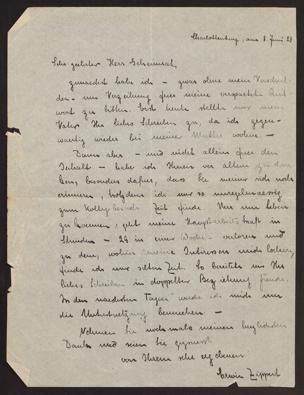 Charlottenburg, am 8. Juni 28
Sehr geehrter Herr Geheimrat,
zunächst habe ich – zwar ohne mein Verschul-
den – um Verzeihung für meine verspätete Ant-
wort zu bitten. Erst heute stellte mir mein
Vater Ihr liebes Schreiben zu, da ich gegen-
wärtig wieder bei meiner Mutter wohne. –
Dann aber – und nicht allein für den
Inhalt – habe ich Ihnen vor allem zu dan-
ken, besonders dafür, dass Sie meiner sich noch
erinnern, trotzdem ich nur so unregelmässig
zum Kolleg Zeit finde. Um leben
zu können, geht meine Hauptarbeitskraft in
Stunden – 24 in einer Woche – verloren und
zu dem, wohin Interessen mich
finde ich nur selten Zeit. So bereitete mir Ihr
liebes Schreiben in doppelter Beziehung Freude.
In den nächsten Tagen werde ich mich um
die bemühen. –
Nehmen Sie nochmals meinen herzlichsten
Dank und seien Sie gegrüsst
von Ihrem sehr ergebenen
Erwin Zippert